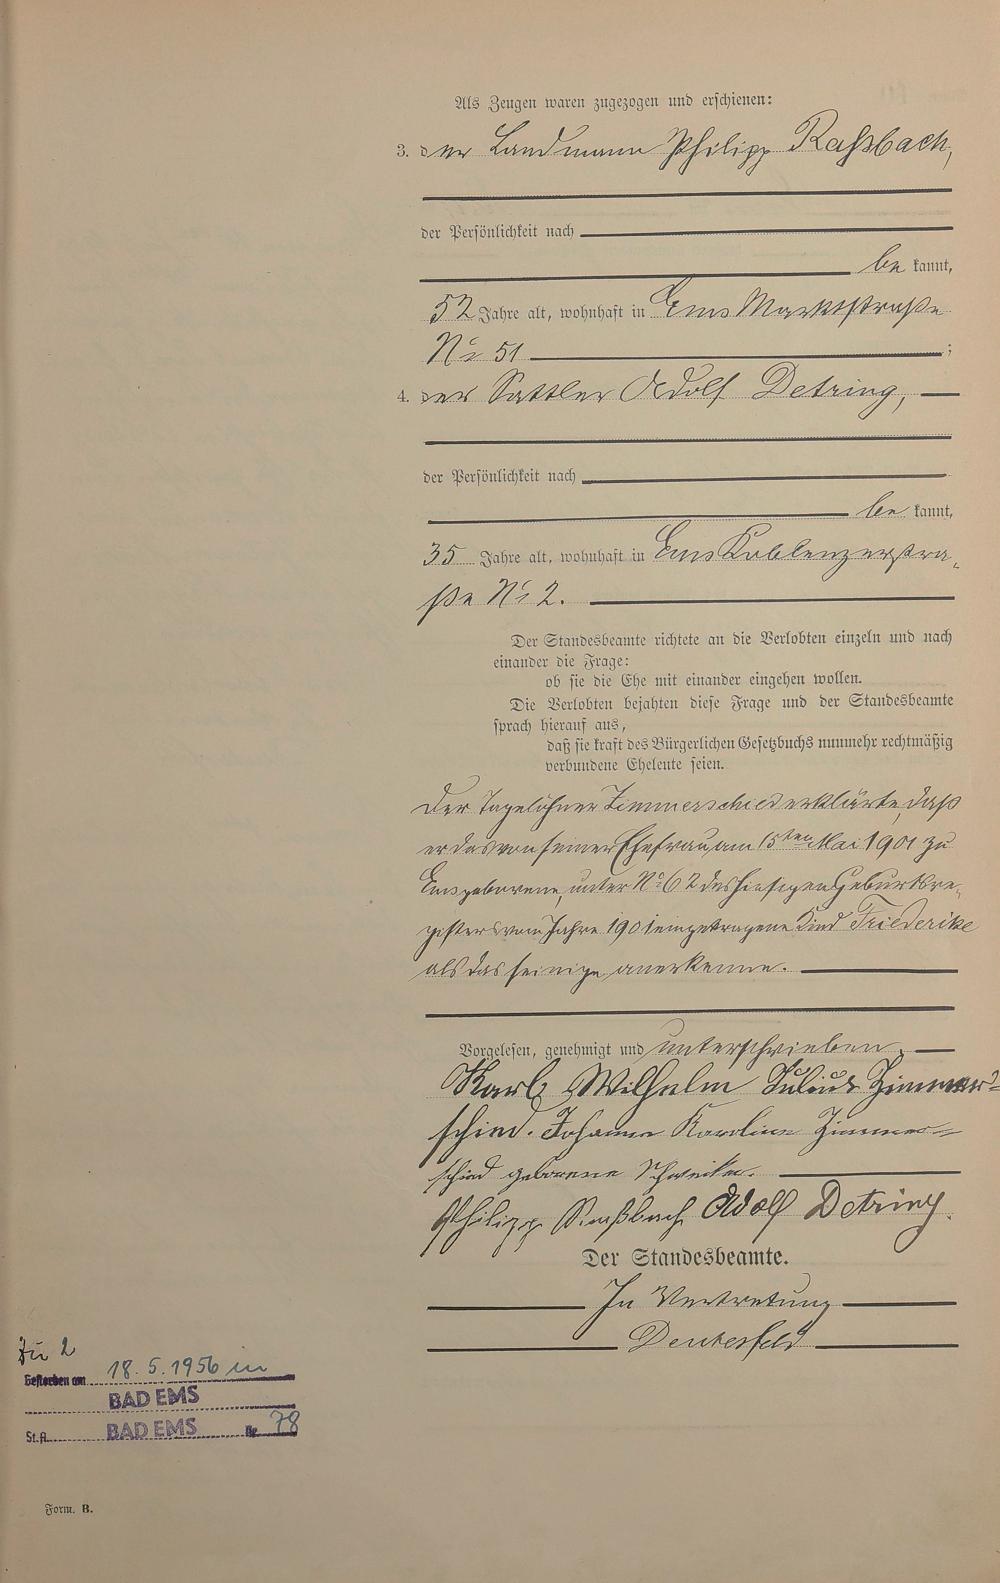 Als Zeugen waren zugezogen und erschienen:
3. der Landmann Philipp Raßbach,
der Persönlichkeit nach
be kannt,
52 Jahre alt, wohnhaft in Ems Marktstraße
No 51 ;
4. der Sattler Adolf Detring,
der Persönlichkeit nach
be kannt,
35 Jahre alt, wohnhaft in Ems Koblenzerstra-
ße No 2.
Der Standesbeamte richtete an die Verlobten einzeln und nach
einander die Frage:
ob sie die Ehe mit einander eingehen wollen.
Die Verlobten bejahten diese Frage und der Standesbeamte
sprach hierauf aus,
daß sie kraft des Bürgerlichen Gesetzbuchs nunmehr rechtmäßig
verbundene Eheleute seien.
Der Tagelöhner Zimmerschied erklärte, daß
er das von seiner Ehefrau am 15ten Mai 1901 zu
Ems geborene, unter No 62 des hiesigen Geburtsre-
gisters vom Jahre 1901 eingetragene Kind Friederike
als das seinige anerkenne.
Vorgelesen, genehmigt und unterschrieben.
Karl Wilhelm Julius Zimmer-
schied. Johanna Karoline Zimmer-
schied geborene
Philipp Raßbach Adolf Detring.
Der Standesbeamte.
In Vertretung
Zu 2
Gestorben am 18.5.1956 in
BAD EMS
St.A. BAD EMS Nr. 78
Form. B.